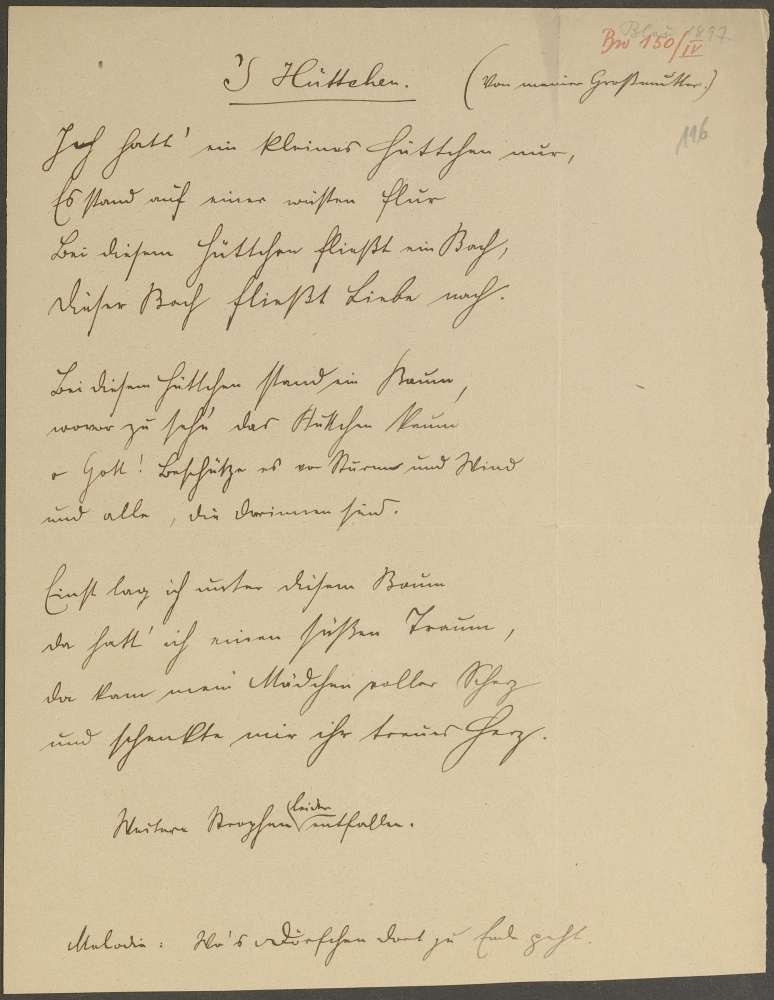 Blau 1897
Bw 150/IV
'S Hüttchen. (Von meiner Großmutter.)
116
Ich hatt' ein kleines Hüttchen nur,
Es stand auf einer wüsten Flur
Bei diesem Hüttchen fließt ein Bach,
Dieser Bach fließt Liebe nach.
Bei diesem Hüttchen stand ein Baum,
wovor zu seh'n das Hüttchen kaum
o Gott! Beschütze es vor Sturm und Wind
und alle, die darinnen sind.
Einst lag ich unter diesem Baum
da hatt' ich einen süßen Traum,
da kam mein Mädchen voller Scherz
und schenkte mir ihr treues Herz.
Weitere Strophen leider entfallen.
Melodie: Wo's Dörfchen dort zu Ende geht.